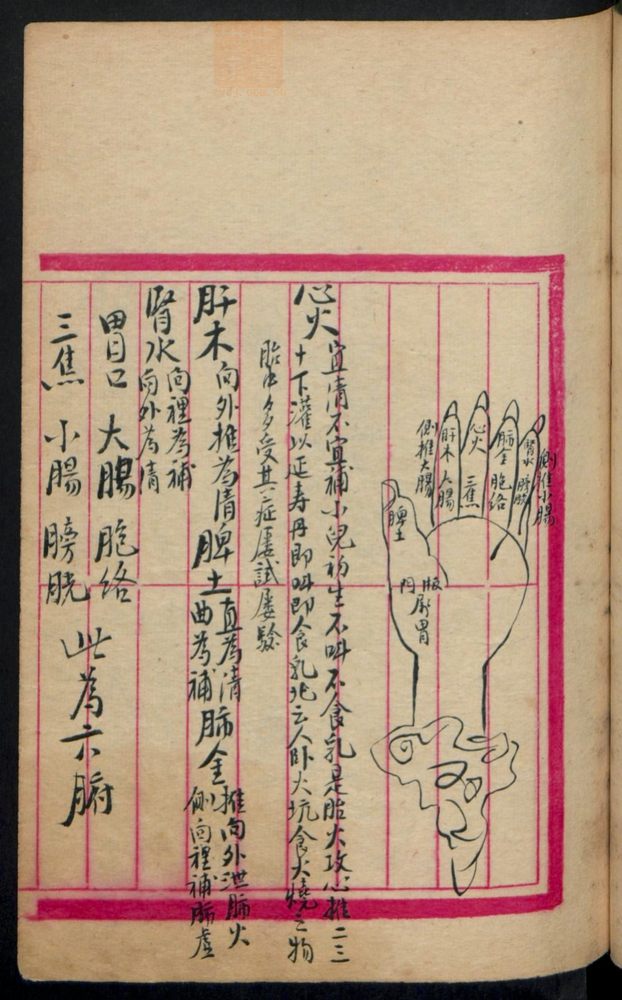 側推小腸
腎水 膀胱
肺金 胞絡
心火 三焦
肝木 大腸
側推大腸
脾土
心火 宜清不宜補小兒初生不叫不食乳是胎火攻心推二三
十下灌以延寿丹即叫即食乳北云人卧火坑食火燒之物
胎中多受其症屡試屡驗
肝木 向外推為清 脾土 直為清 肺金 推向外泄肺火
曲為補 側向裡補肺虛
腎水 向裡為補
向外為清
胃口 大腸 胞絡
三焦 小腸 膀胱 此為六腑